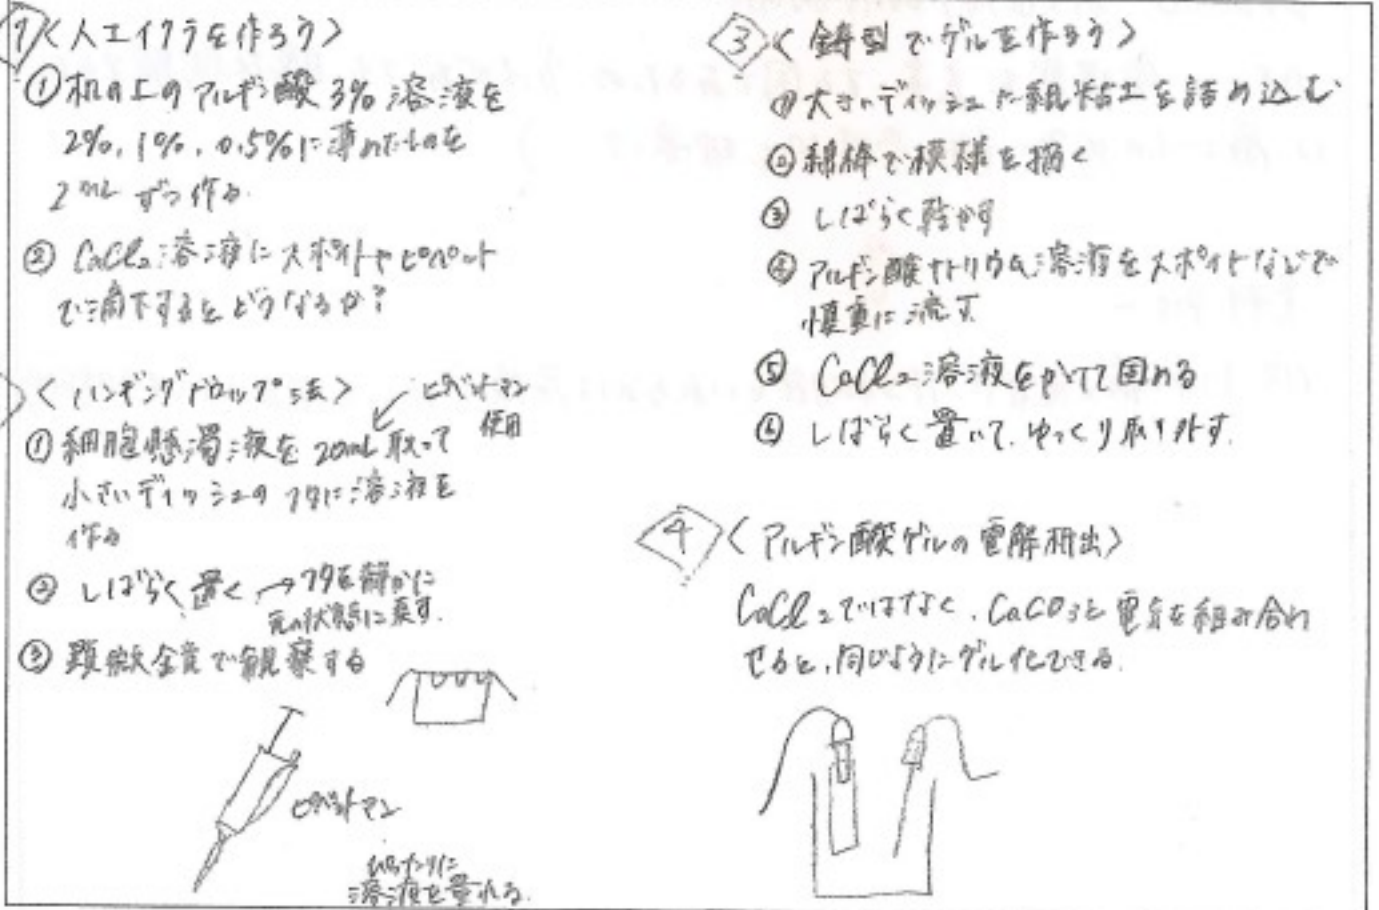 1 〈人工イクラを作ろう〉
① 机の上のアルギン酸 3% 溶液を
2%, 1%, 0.5%に薄めたものを
2mL ずつ作る.
② CaCl₂溶液にスポイトやピペット
で滴下するとどうなるか?
〈ハンギングドロップ法〉
ピペットマン
使用
① 細胞懸濁液を 20mL 取って
小さいディッシュのフタに溶液を
作る
② しばらく置く → フタを静かに
元の状態に戻す.
③ 顕微金竟で観察する
ピペットマン
溶液を量れる.
3 〈鋳型でゲルを作ろう〉
① 大さいディッシュに紙粘土を詰め込む
② 綿棒で模様を描く
③ しばらく乾かす
④ アルギン酸ナトリウム溶液をスポイトなどで
慎重に流す.
⑤ CaCl₂溶液をかけて固める
⑥ しばらく置いて、ゆっくり取り外す.
4 〈アルギン酸ゲルの電解析出〉
CaCl₂ではなく、CaCO₃と電気を組み合わ
せると、同じようにゲル化できる.